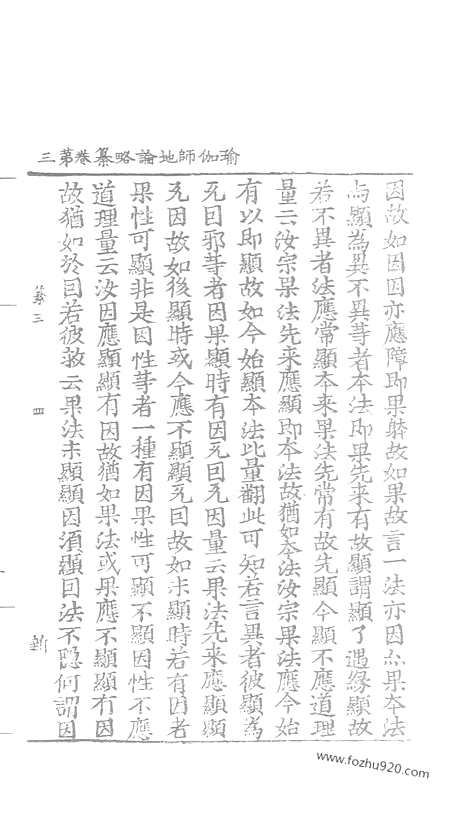 瑜伽師地論略纂卷第三
因故如因因亦應障即果躰故如果故言一法亦因亦果本法
与顯為異不異等者本法即果先来有故顯謂顯了遇緣顯故
若不異者法應常顯本来果法先常有故先顯今顯不應道理
量云汝宗果法先来應顯即本法故猶如本法汝宗果法應今始
有以即顯故如今始顯本法此量翻此可知若言異者彼顯為
无因邪等者因果顯時有因无因无因量云果法先来應顯顯
无因故如後顯時或今應不顯顯无因故如未顯時若有因者
果性可顯非是因性等者一種有因果性可顯不顯因性不應
道理量云汝因應顯顯有因故猶如果法或果應不顯顯有因
故猶如於因若彼救云果法未顯顯因須顯因法不隱何謂因
三
四
www.fozhu920.com